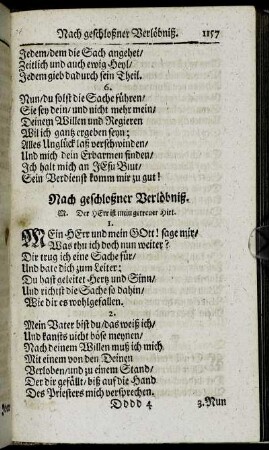 Nach geschloßner Verlöbniß. 1157
Jedem/dem die Sach angehet/
Zeitlich und auch ewig Heyl/
Jedem gieb dadurch sein Theil.
6.
Nun/du solst die Sache führen/
Sie sey dein/ und nicht mehr mein/
Deinem Willen und Regieren
Wil ich gantz ergeben seyn;
Alles Unglück laß verschwinden/
Und mich dein Erbarmen finden/
Ich halt mich an JEsu Blut/
Sein Verdienst komm mir zu gut!
Nach geschloßner Verlöbniß.
M. Der HErr ist mein getreuer Hirt.
1.
MEin HErr und mein GOtt! sage mir/
Was thu ich doch nun weiter?
Dir trug ich eine Sache für/
Und bate dich zum Leiter;
Du hast geleitet Hertz und Sinn/
Und richtst die Sache so dahin/
Wie dir es wohlgefallen.
2.
Mein Vater bist du/das weiß ich/
Und kansts nicht böse meynen/
Nach deinem Willen muß ich mich
Mit einem von den Deinen
Verloben/und zu einem Stand/
Der dir gefällt/ biß auf die Hand
Des Priesters mich versprechen.
Dddd 4 3. Nun